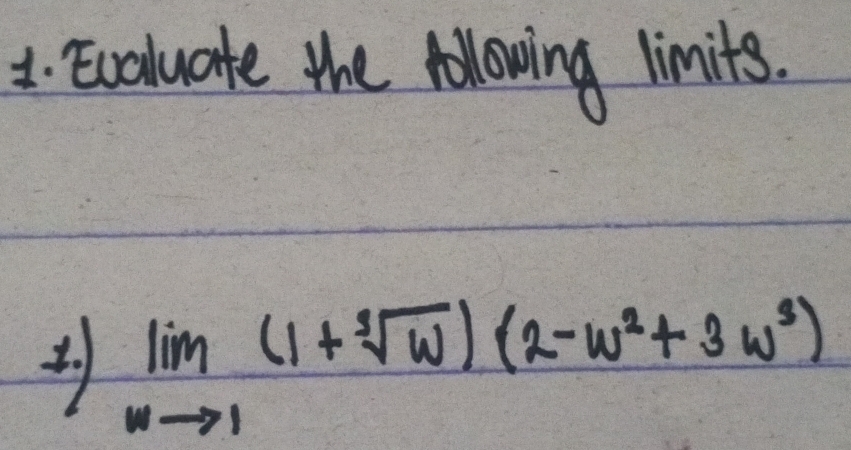 1. Evaluate the following limits.
1.) lim (1 + ∛w) (2 - w² + 3 w³)
w → 1